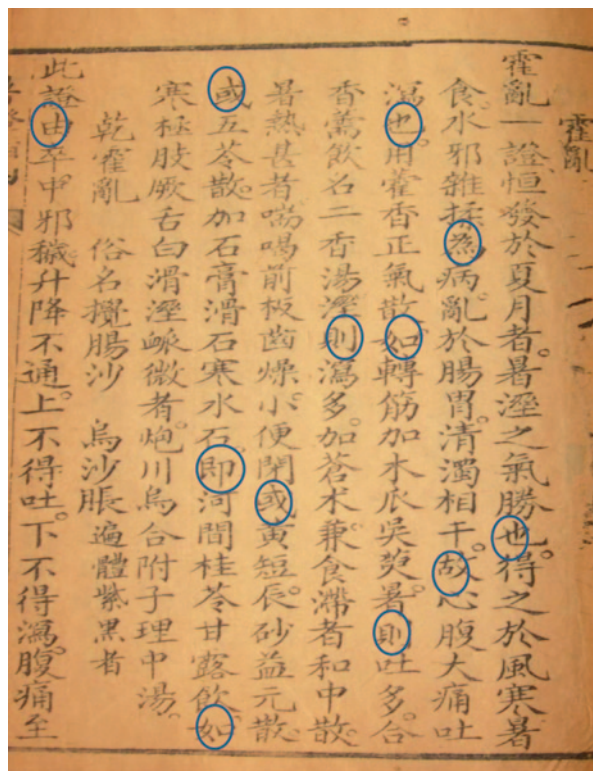 霍亂
霍亂一證恒發於夏月者。暑溼之氣勝也。得之於風寒暑
食。水邪雜揉為病。亂於腸胃。清濁相干。故心腹大痛吐
瀉也。用藿香正氣散。如轉筋加木瓜吳萸。暑則吐多。合
香薷飲名二香湯。溼則瀉多。加蒼术。兼食滯者和中散。
暑熱甚者喘喝前板齒燥。小便閉。或黃短。辰砂益元散。
或五苓散。加石膏滑石寒水石。即河間桂苓甘露飲。如
寒極肢厥舌白滑溼脈微者。炮川烏合附子理中湯。
乾霍亂 俗名攪腸沙 烏沙脹遍體紫黑者
此證由卒中邪穢。升降不通。上不得吐。下不得瀉。腹痛至